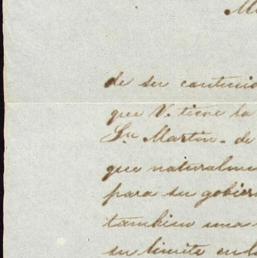 M
de su contenido
que V. tiene la
Sn Martin - de
que naturalme
para su gobier
tambien una
su limite en l